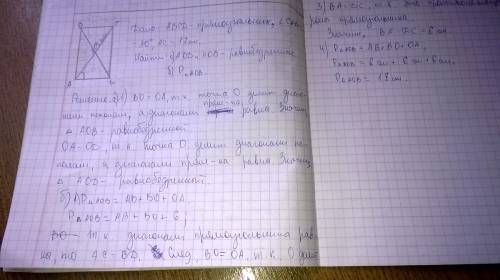 Дано: ABCD - прямоугольник, ∠CAD
= 30°, AC = 12 см
Найти: а) AOD, AOB - равнобедренные
б) P△AOB.
Решение. а) 1) BO = OA, т.к. точка O делит диаго-
нали пополам, а диагонали прям-ка равны. Значит,
△ AOB - равнобедренный.
OA = OD, т.к. точка O делит диагонали по-
полам, а диагонали прям-ка равны. Значит,
△ AOD - равнобедренный.
б) P△AOB = AB + BO + OA.
P△AOB = AB + BO + 6;
т.к. диагонали прямоугольника рав-
ны, то AC = BD. След, BO = OA, т.к. O делит
3)
прямоугольника.
Значит, = 6 см
4) P△AOB = AB + BO + OA,
P△AOB = 6 см + 6 см + 6 см.
P△AOB = 18 см.